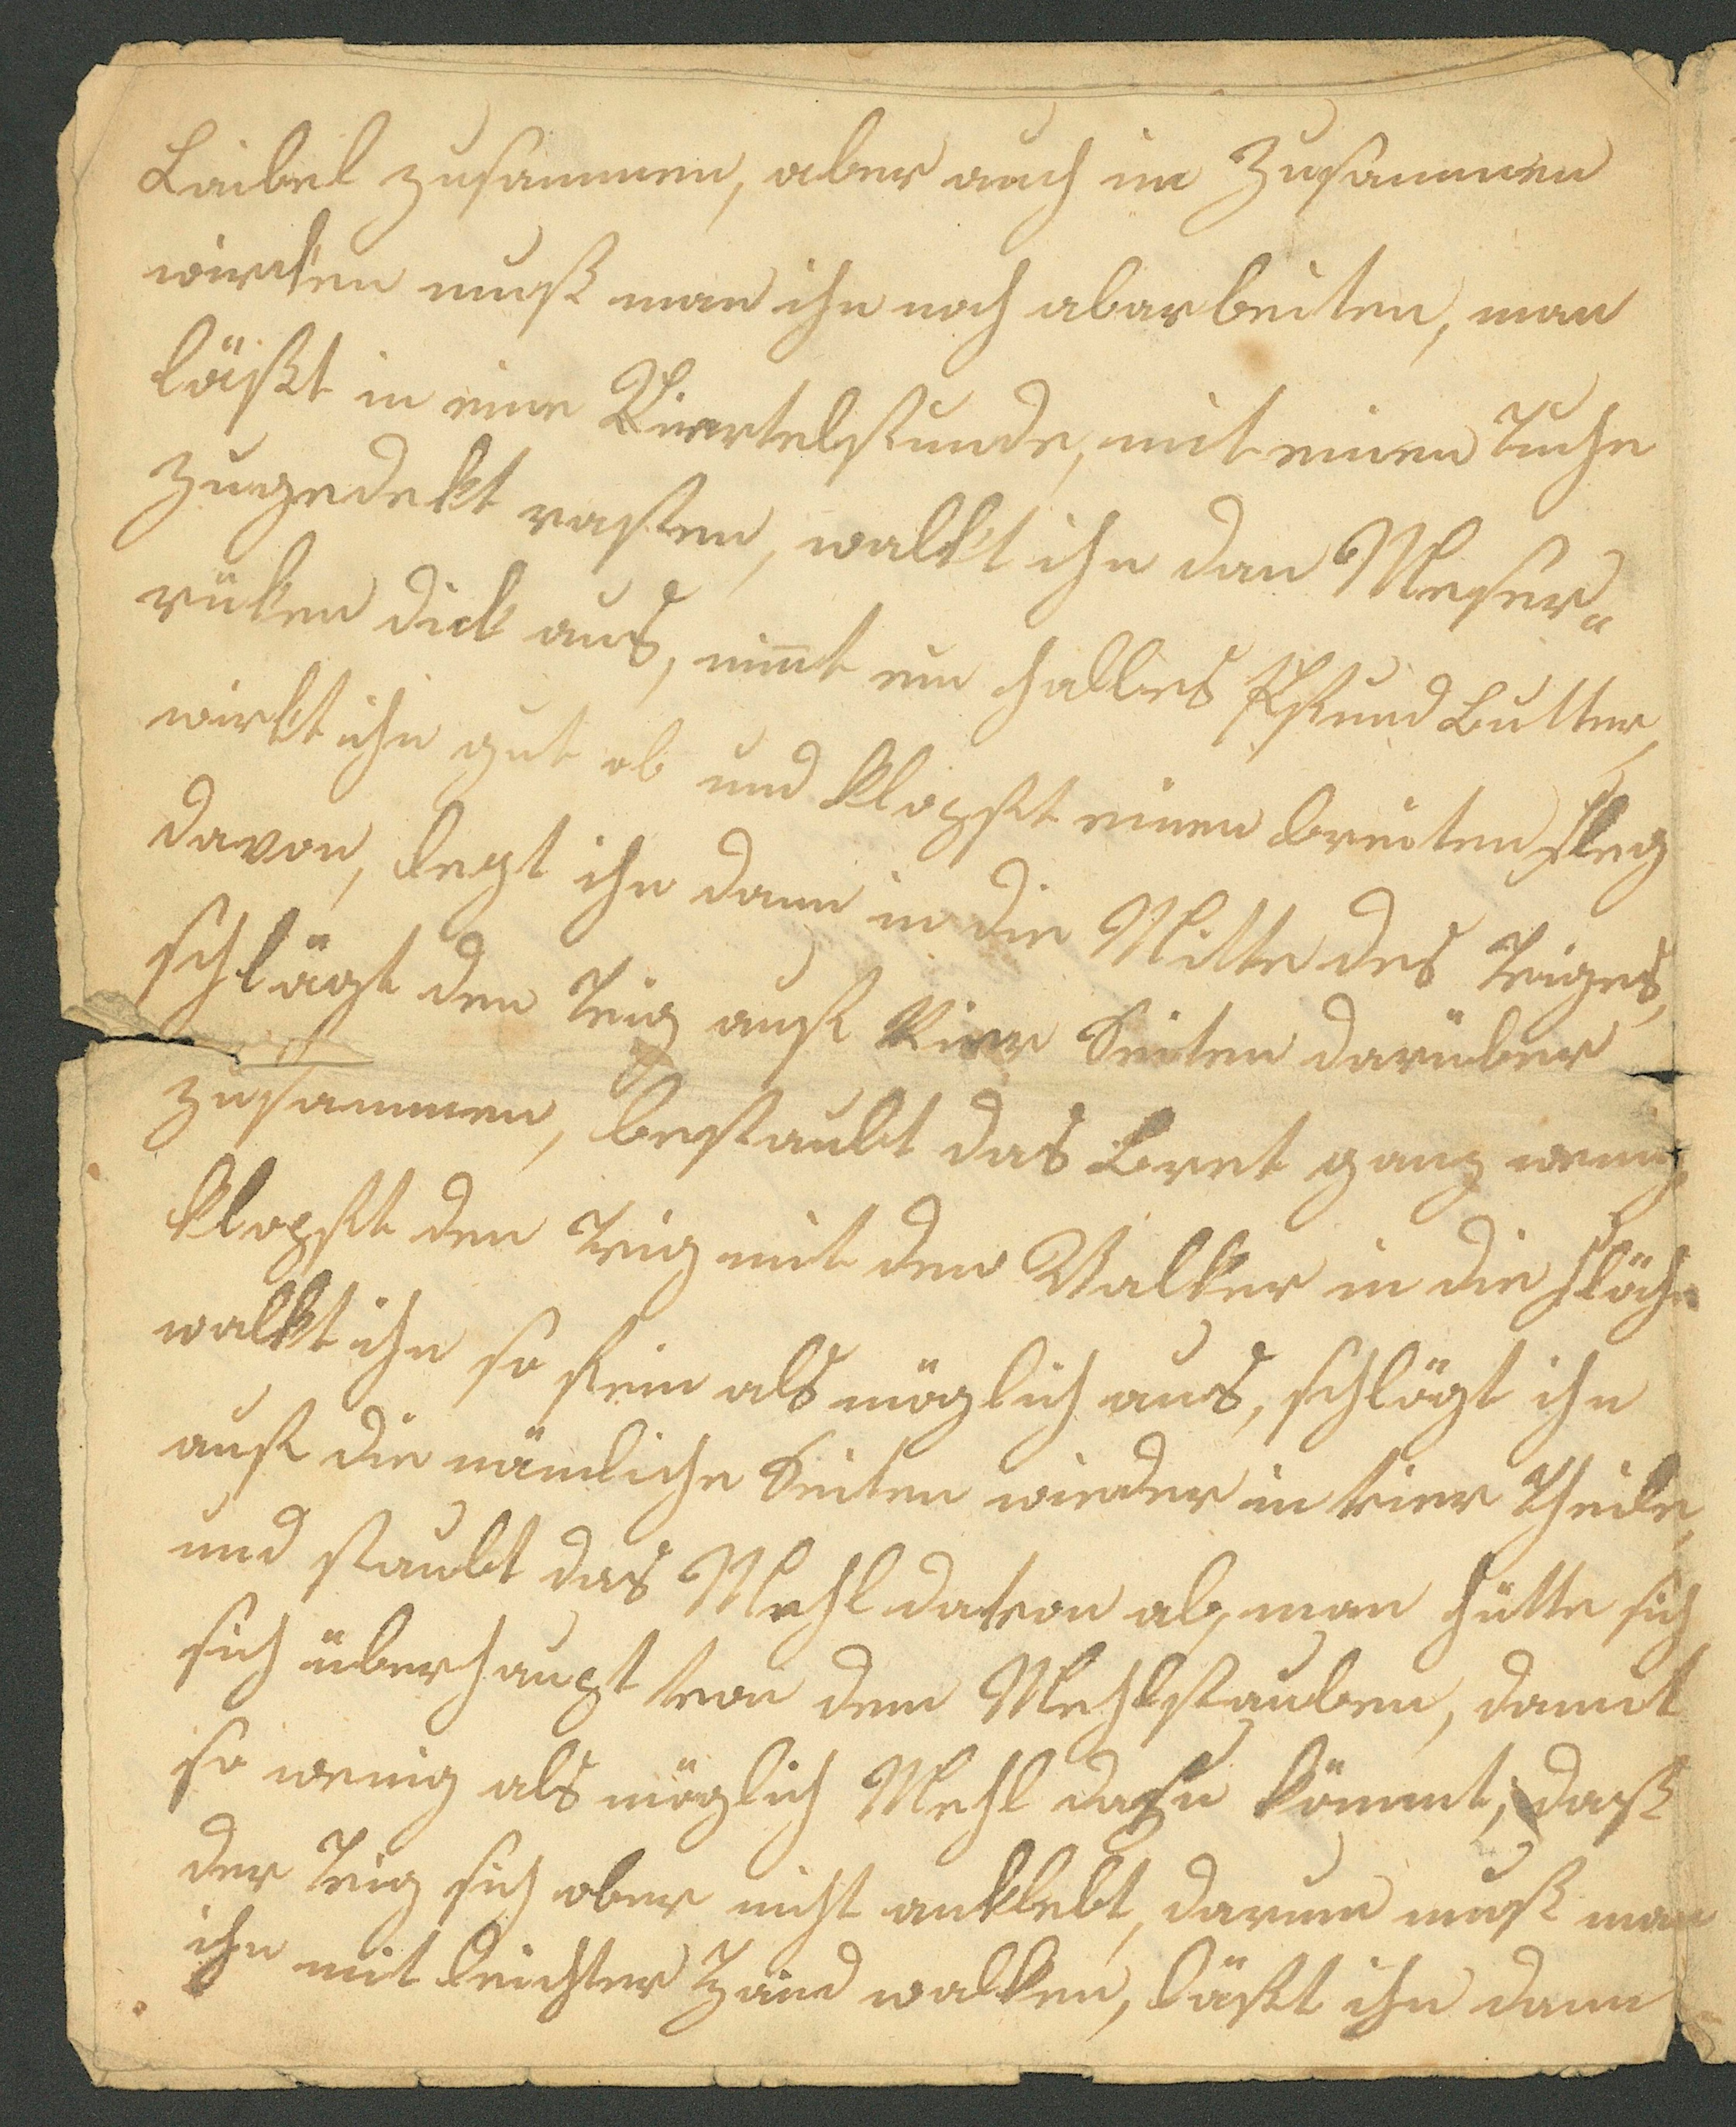 Laibel zusammen, aber auch im Zusammen
wirken muß man ihn noch abarbeiten, man
läßt in eine Viertelstunde, mit einen Tuche
zugedekt rasten, walkt ihn dan Messer=
rüken dick aus, nim̅t ein halbes Pfund Butter,
wirkt ihn gut ab und klopft einen breiten Fleg
davon, legt ihn dann in die Mitte des Teiges,
schlägt den Teig auf Vier Seiten darüber
zusammen, bestaubt das Bret ganz wenig,
klopft den Teig mit den Walker in die Fläche
walkt ihn so fein als möglich aus, schlägt ihn
auf die nämliche Seiten wieder in vier Theile,
und staubt das Mehl davon ab, man hütte sich
sich überhaupt von dem Mehlstauben, damit
so wenig als möglich Mehl dazu kömmt, daß
der Teig sich aber nicht anklebt, darum muß man
ihn mit leichter Hand walken, läßt ihn dann